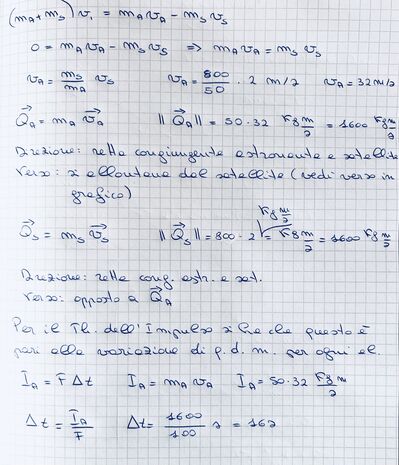 (m_A + m_S) v_i = m_A v_A - m_S v_S
0 = m_A v_A - m_S v_S => m_A v_A = m_S v_S
v_A = m_S/m_A v_S   v_A = 800/50 · 2 m/s   v_A = 32 m/s
Q⃗_A = m_A v⃗_A   ||Q⃗_A|| = 50·32 Kg m/s = 1600 Kg m/s
Direzione: retta congiungente astronauta e satellite
Verso: si allontana dal satellite (vedi verso in
grafico)
Q⃗_S = m_S v⃗_S   ||Q⃗_S|| = 800 · 2 Kg m/s = 1600 Kg m/s
Direzione: retta cong. astr. e sat.
Verso: opposto a Q⃗_A
Per il Th. dell'Impulso si ha che questo è
pari alla variazione di q. d. m. per ogni el.
I_A = F Δt   I_A = m_A v_A   I_A = 50·32 Kg m/s
Δt = I_A/F   Δt = 1600/100 s = 16s